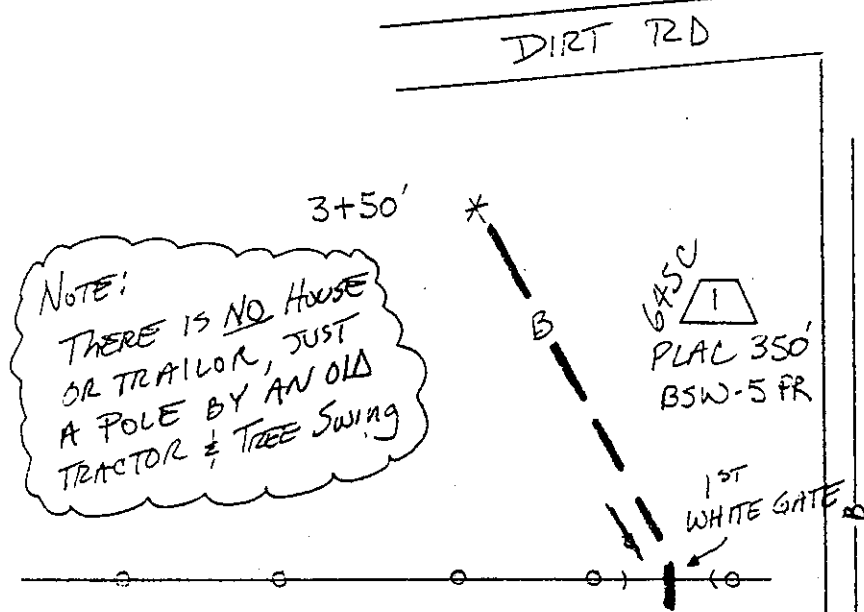 DIRT RD
3+50'
*
NOTE:
THERE IS NO HOUSE
OR TRAILOR, JUST
A POLE BY AN OLD
TRACTOR & TREE Swing
B
645U
1
PLAC 350'
BSW-5 PR
1ST
WHITE GATE
B